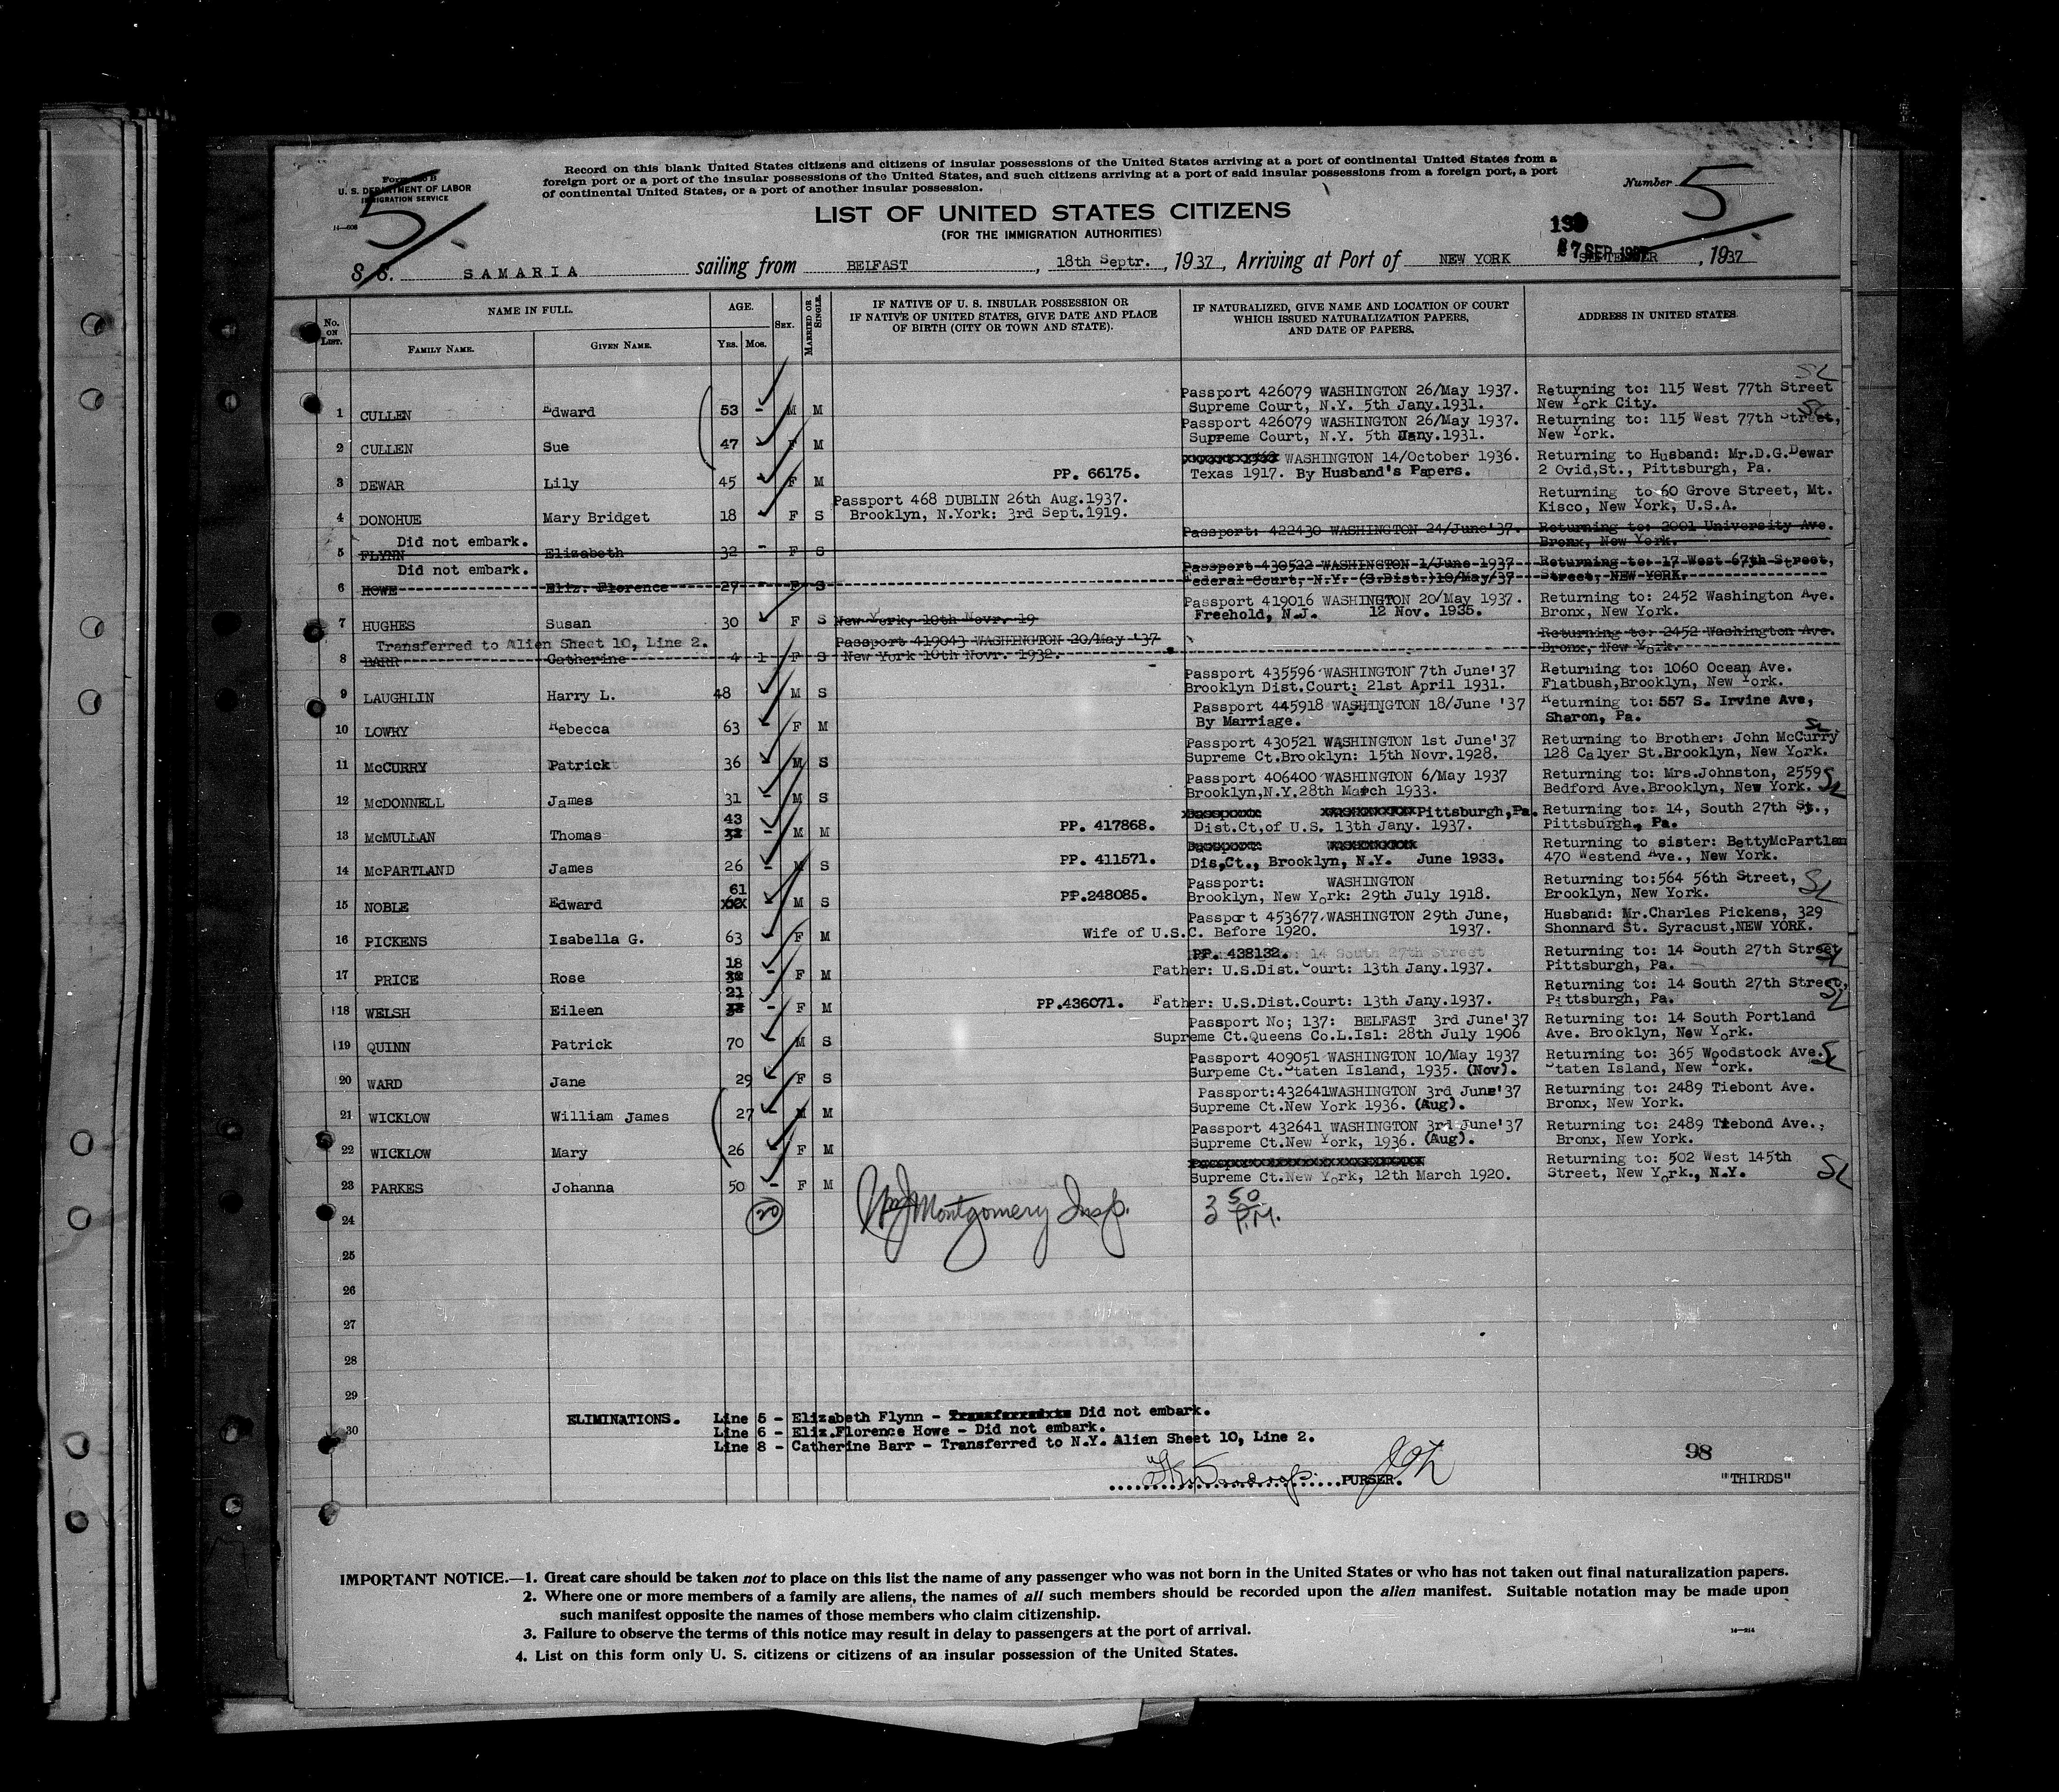 Form 500 B
U. S. DEPARTMENT OF LABOR
IMMIGRATION SERVICE
5
Record on this blank United States citizens and citizens of insular possessions of the United States arriving at a port of continental United States from a
foreign port or a port of the insular possessions of the United States, and such citizens arriving at a port of said insular possessions from a foreign port, a port
of continental United States, or a port of another insular possession.
Number 5
LIST OF UNITED STATES CITIZENS
(FOR THE IMMIGRATION AUTHORITIES)
S. S. SAMARIA sailing from BELFAST, 18th Septr., 1937, Arriving at Port of NEW YORK SEPTEMBER, 1937
No. ON LIST. NAME IN FULL. AGE. SEX. MARRIED OR SINGLE. IF NATIVE OF U. S. INSULAR POSSESSION OR IF NATIVE OF UNITED STATES, GIVE DATE AND PLACE OF BIRTH (CITY OR TOWN AND STATE). IF NATURALIZED, GIVE NAME AND LOCATION OF COURT WHICH ISSUED NATURALIZATION PAPERS, AND DATE OF PAPERS. ADDRESS IN UNITED STATES
FAMILY NAME. GIVEN NAME. YRS. MOS.
Passport 426079 WASHINGTON 26/May 1937. Returning to: 115 West 77th Street
1 CULLEN Edward 53 - M M Supreme Court, N.Y. 5th Jany.1931. New York City.
Passport 426079 WASHINGTON 26/May 1937. Returning to: 115 West 77th Street,
2 CULLEN Sue 47 F M Supreme Court, N.Y. 5th Jany.1931. New York.
WASHINGTON 14/October 1936. Returning to Husband: Mr.D.G.Dewar
3 DEWAR Lily 45 F M PP. 66175. Texas 1917. By Husband's Papers. 2 Ovid,St., Pittsburgh, Pa.
Passport 468 DUBLIN 26th Aug.1937. Returning to 60 Grove Street, Mt.
4 DONOHUE Mary Bridget 18 F S Brooklyn, N.York: 3rd Sept.1919. Kisco, New York, U.S.A.
Did not embark. Passport: 422430 WASHINGTON 24/June'37. Returning to: 2001 University Ave.
5 FLYNN Elizabeth 32 - F S Bronx, New York.
Did not embark. Passport 430522 WASHINGTON 1/June 1937 Returning to: 17 West 67th Street,
6 HOWE Eliz. Florence 27 - F S Federal Court, N.Y. (S.Dist.)10/May/37 Street, NEW YORK.
Passport 419016 WASHINGTON 20/May 1937. Returning to: 2452 Washington Ave.
7 HUGHES Susan 30 F S New York, 10th Novr. 19 Freehold, N.J. 12 Nov. 1935. Bronx, New York.
Transferred to Alien Sheet 10, Line 2. Passport 419043 WASHINGTON 20/May '37 Returning to: 2452 Washington Ave.
8 BARR Catherine 4 1 F S New York 10th Novr. 1932. Bronx, New York.
Passport 435596 WASHINGTON 7th June'37 Returning to: 1060 Ocean Ave.
9 LAUGHLIN Harry L. 48 M S Brooklyn Dist.Court: 21st April 1931. Flatbush,Brooklyn, New York.
Passport 445918 WASHINGTON 18/June '37 Returning to: 557 S. Irvine Ave,
10 LOWRY Rebecca 63 F M By Marriage. Sharon, Pa.
Passport 430521 WASHINGTON 1st June'37 Returning to Brother: John McCurry
11 McCURRY Patrick 36 M S Supreme Ct.Brooklyn: 15th Novr.1928. 128 Calyer St.Brooklyn, New York.
Passport 406400 WASHINGTON 6/May 1937 Returning to: Mrs.Johnston, 2559
12 McDONNELL James 31 - M S Brooklyn,N.Y.28th March 1933. Bedford Ave.Brooklyn, New York.
43 Pittsburgh,Pa. Returning to: 14, South 27th St.,
13 McMULLAN Thomas - M M PP. 417868. Dist.Ct,of U.S. 13th Jany. 1937. Pittsburgh, Pa.
Returning to sister: BettyMcPartlan
14 McPARTLAND James 26 - M S PP. 411571. Dis,Ct., Brooklyn, N.Y. June 1933. 470 Westend Ave., New York.
61 Passport: WASHINGTON Returning to:564 56th Street,
15 NOBLE Edward M S PP.248085. Brooklyn, New York: 29th July 1918. Brooklyn, New York.
Passport 453677 WASHINGTON 29th June, Husband: Mr.Charles Pickens, 329
16 PICKENS Isabella G. 63 - F M Wife of U.S.C. Before 1920. 1937. Shonnard St. Syracust,NEW YORK.
18 PP. 438132. Returning to: 14 South 27th Street
17 PRICE Rose - F M Father: U.S.Dist.Court: 13th Jany.1937. Pittsburgh, Pa.
21 Returning to: 14 South 27th Street,
18 WELSH Eileen - F M PP.436071. Father: U.S.Dist.Court: 13th Jany.1937. Pittsburgh, Pa.
Passport No; 137: BELFAST 3rd June'37 Returning to: 14 South Portland
19 QUINN Patrick 70 M S Supreme Ct.Queens Co.L.Isl: 28th July 1906 Ave. Brooklyn, New York.
Passport 409051 WASHINGTON 10/May 1937 Returning to: 365 Woodstock Ave.
20 WARD Jane 29 F S Surpeme Ct.Staten Island, 1935. (Nov). Staten Island, New York.
Passport:432641WASHINGTON 3rd June'37 Returning to: 2489 Tiebont Ave.
21 WICKLOW William James 27 - M M Supreme Ct.New York 1936. (Aug). Bronx, New York.
Passport 432641 WASHINGTON 3rd June'37 Returning to: 2489 Tiebond Ave.,
22 WICKLOW Mary 26 F M Supreme Ct.New York, 1936. (Aug). Bronx, New York.
Returning to: 502 West 145th
23 PARKES Johanna 50 - F M Supreme Ct.New York, 12th March 1920. Street, New York., N.Y.
24 20 Montgomery Insp. 3 50 P.M.
25
26
27
28
29
ELIMINATIONS. Line 5 - Elizabeth Flynn - Did not embark.
30 Line 6 - Eliz.Florence Howe - Did not embark.
Line 8 - Catherine Barr - Transferred to N.Y. Alien Sheet 10, Line 2.
98
PURSER.
"THIRDS"
IMPORTANT NOTICE.—1. Great care should be taken not to place on this list the name of any passenger who was not born in the United States or who has not taken out final naturalization papers.
2. Where one or more members of a family are aliens, the names of all such members should be recorded upon the alien manifest. Suitable notation may be made upon
such manifest opposite the names of those members who claim citizenship.
3. Failure to observe the terms of this notice may result in delay to passengers at the port of arrival.
4. List on this form only U. S. citizens or citizens of an insular possession of the United States.